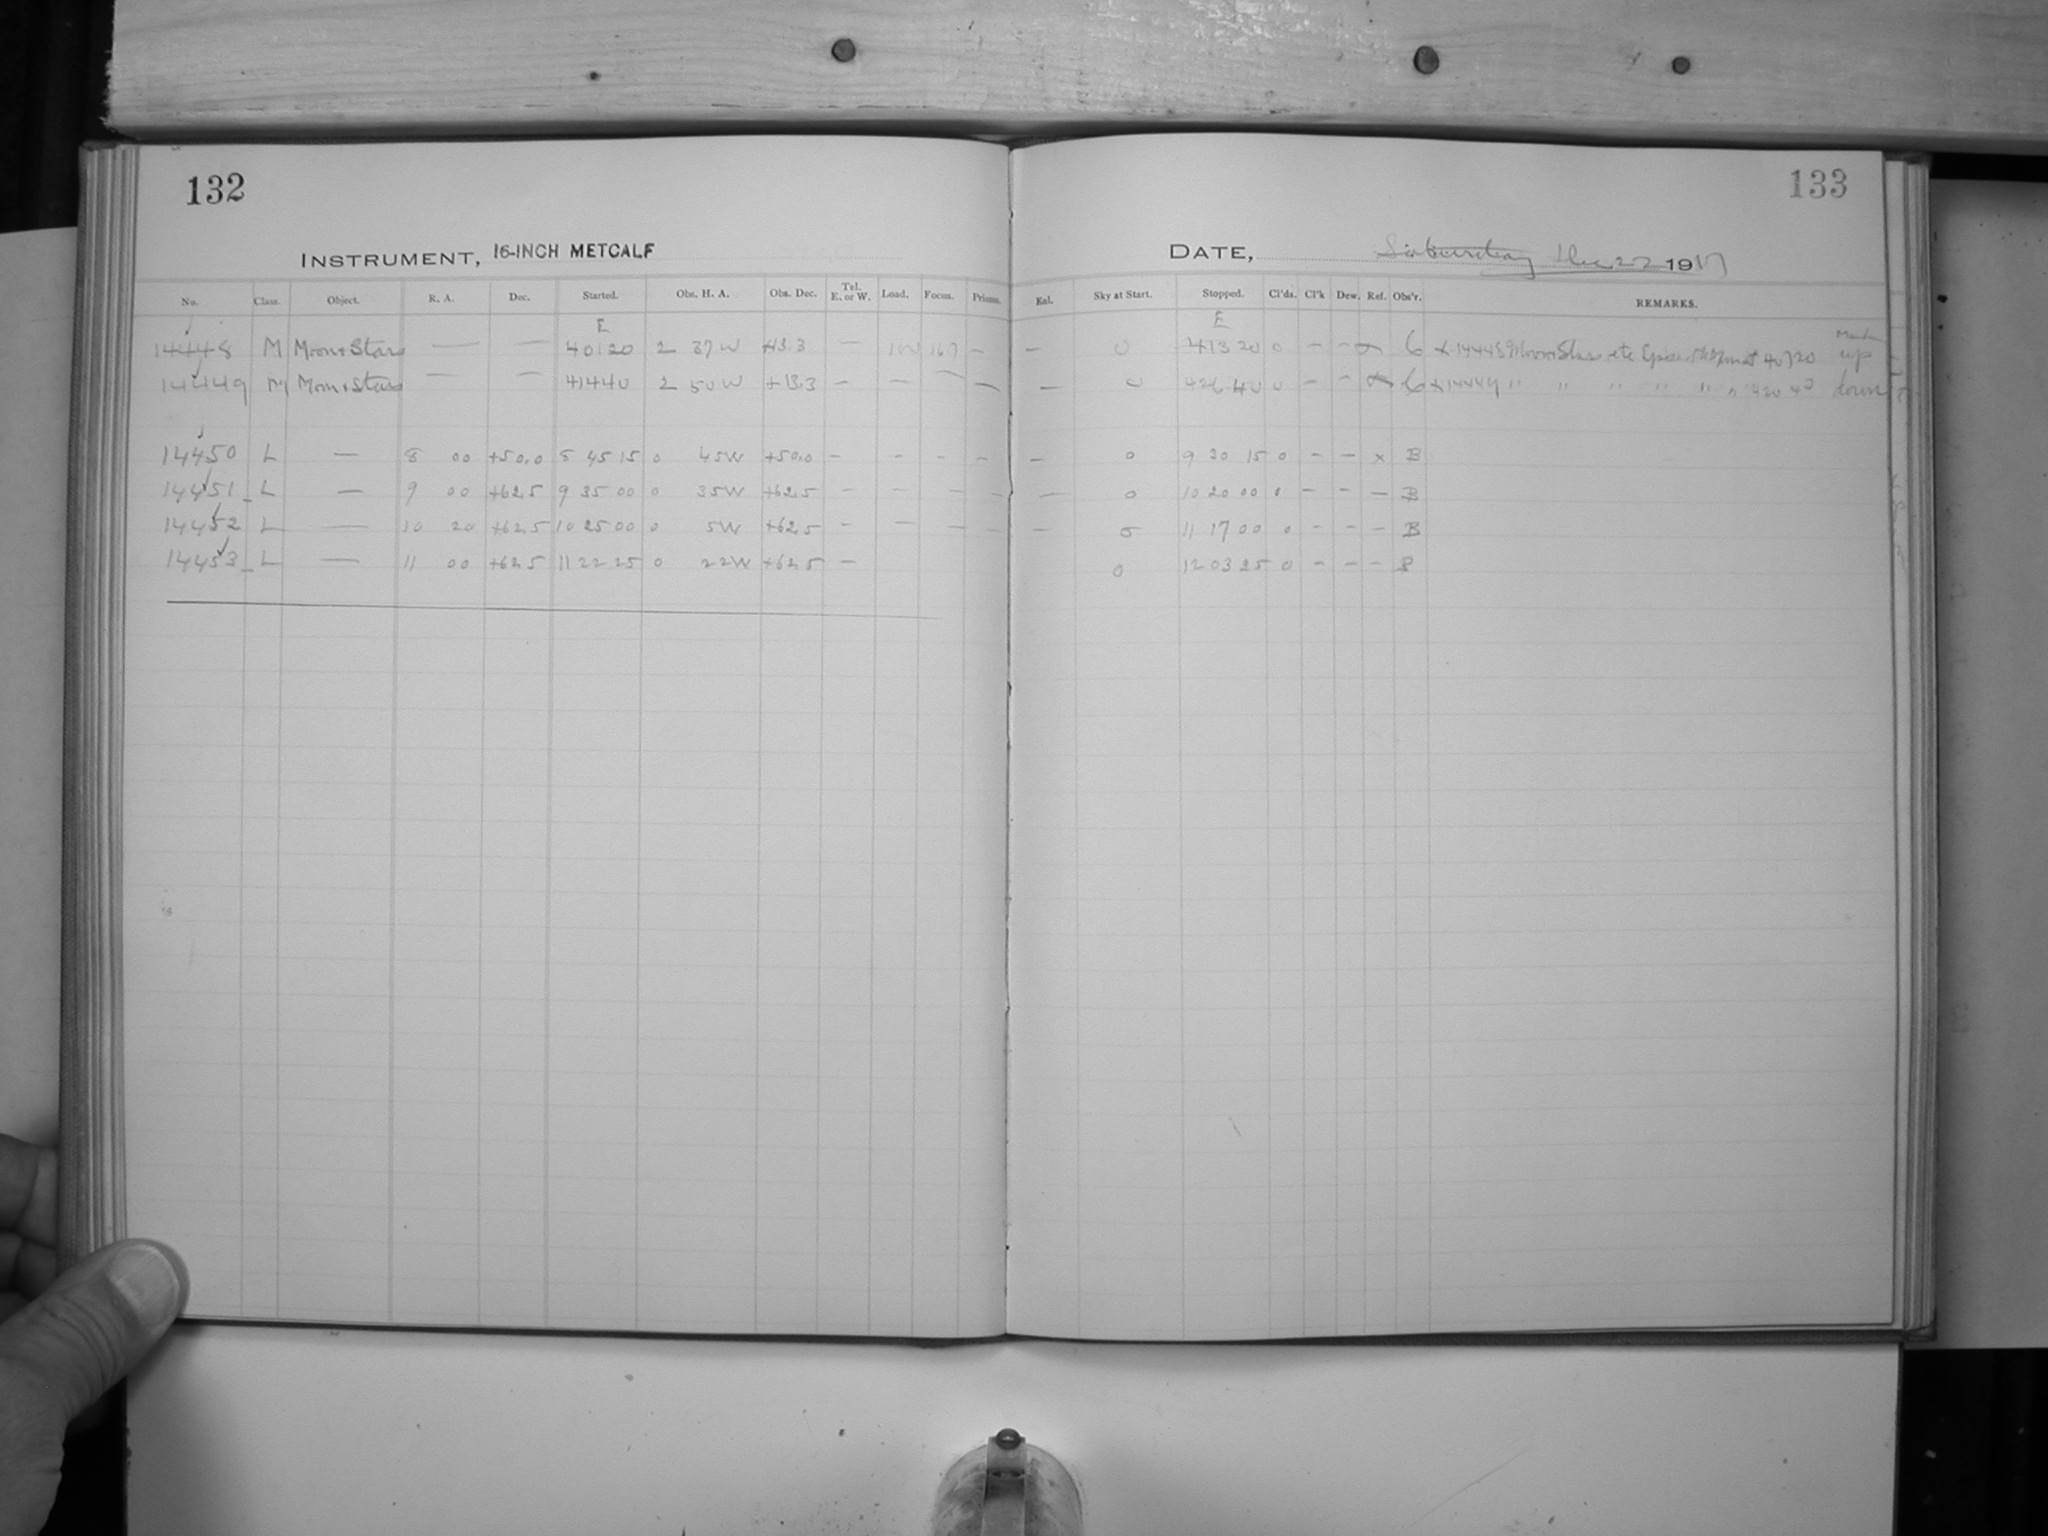 132
133
INSTRUMENT, 16-INCH METCALF
DATE, Saturday Dec 22 1917
No. Class. Object. R. A. Dec. Started. Obs. H. A. Obs. Dec. Tel. E. or W. Load. Focus. Prisms. Eal. Sky at Start. Stopped. Cl'ds. Cl'k Dew. Ref. Obs'r. REMARKS.
E E
14448 M Moon+Stars — — 4 01 20 2 37 W +13.3 — 167 — — 0 4 13 20 0 - - 6 x 14448 Moon Stars etc 4 07 20 up
14449 M Moon+Stars — — 4 14 40 2 50 W +13.3 - — — — — 0 4 26 40 0 - - 6 x 14449 " " " " " " 4 20 40 down
14450 L — 8 00 +50.0 8 45 15 0 45W +50.0 - - - - - 0 9 30 15 0 - - x B
14451 L — 9 00 +62.5 9 35 00 0 35W +62.5 - - - - - 0 10 20 00 0 - - - B
14452 L — 10 20 +62.5 10 25 00 0 5W +62.5 - - - - - 0 11 17 00 0 - - - B
14453 L — 11 00 +62.5 11 22 25 0 22W +62.5 - 0 12 03 25 0 - - - B